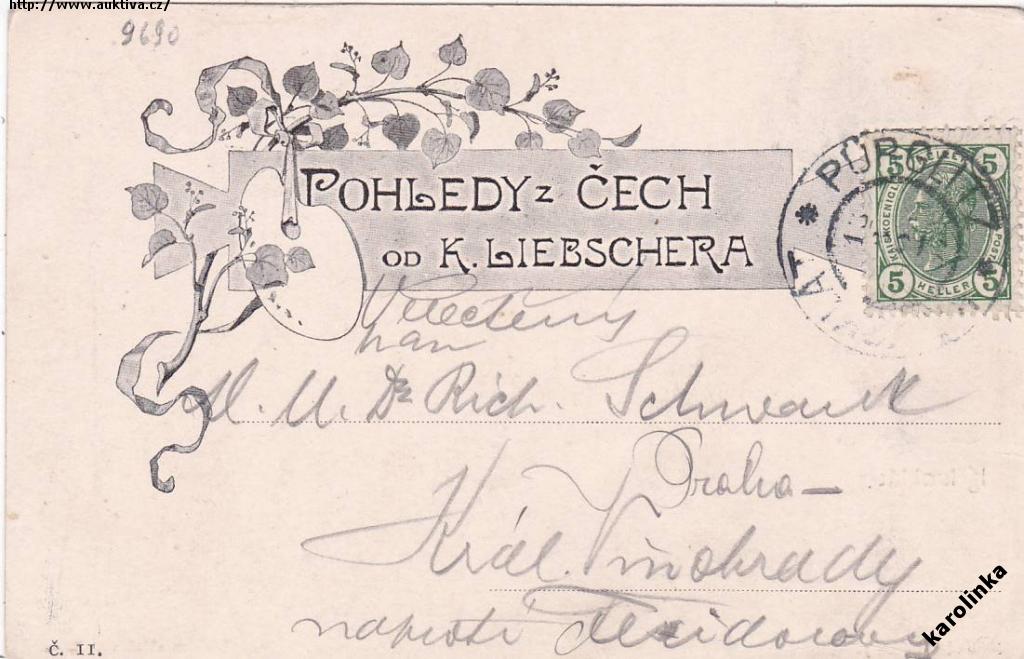 http://www.auktiva.cz/
9690
POHLEDY Z ČECH
OD K. LIEBSCHERA
PÜRGLITZ
5 5
5 HELLER 5
Veectěný
pan
M. U. Dr Rich. Schwank
Praha –
Král. Vinohrady
naproti
Č. II.
karolinka